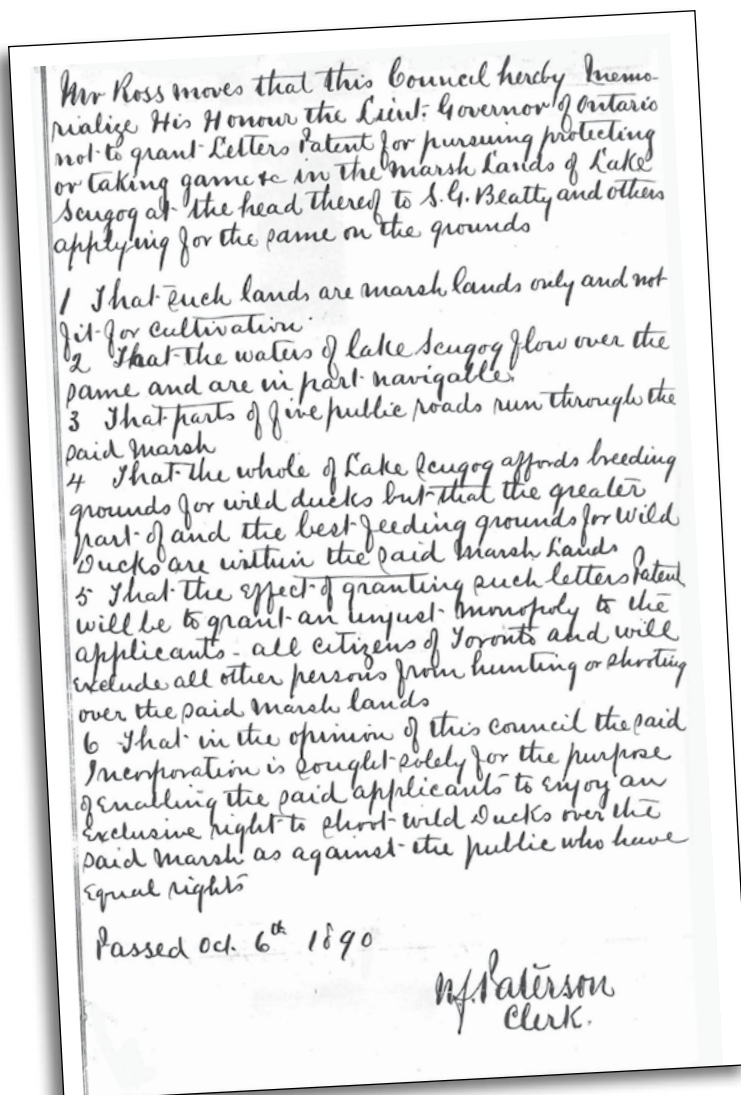 Mr Ross moves that this Council hereby Memo-
rialize His Honour the Lieut. Governor of Ontario
not to grant Letters Patent for pursuing protecting
or taking game &c in the marsh Lands of Lake
Scugog at the head thereof to S. G. Beatty and others
applying for the same on the grounds
1 That such lands are marsh lands only and not
fit for cultivation.
2 That the waters of lake Scugog flow over the
same and are in part navigable.
3 That parts of five public roads run through the
said marsh
4 That the whole of Lake Scugog affords breeding
grounds for wild ducks but that the greater
part of and the best feeding grounds for Wild
Ducks are within the said Marsh Lands
5 That the effect of granting such letters Patent
will be to grant an unjust monopoly to the
applicants - all citizens of Toronto and will
exclude all other persons from hunting or shooting
over the said marsh lands
6 That in the opinion of this council the said
Incorporation is sought solely for the purpose
of enabling the said applicants to enjoy an
exclusive right to shoot wild Ducks over the
said Marsh as against the public who have
equal rights
Passed Oct. 6th 1890
Paterson
Clerk.